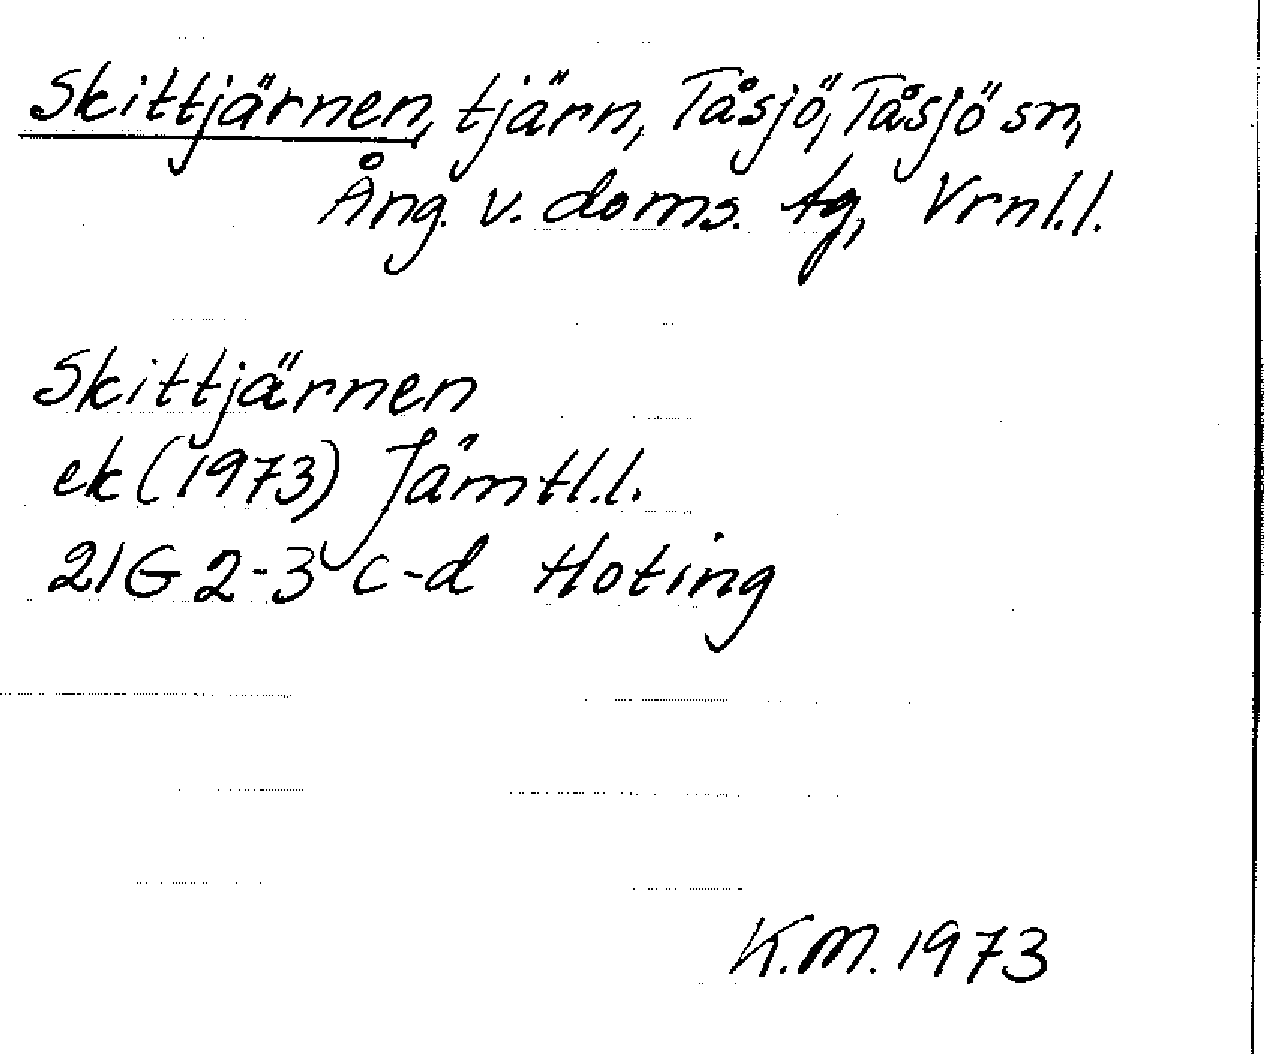 Skittjärnen, tjärn, Tåsjö, Tåsjö sn,
Ång. v. doms. tg, Vrnl.l.
Skittjärnen
ek (1973) Jämtl.l.
21G 2-3 c-d Hoting
K.M. 1973